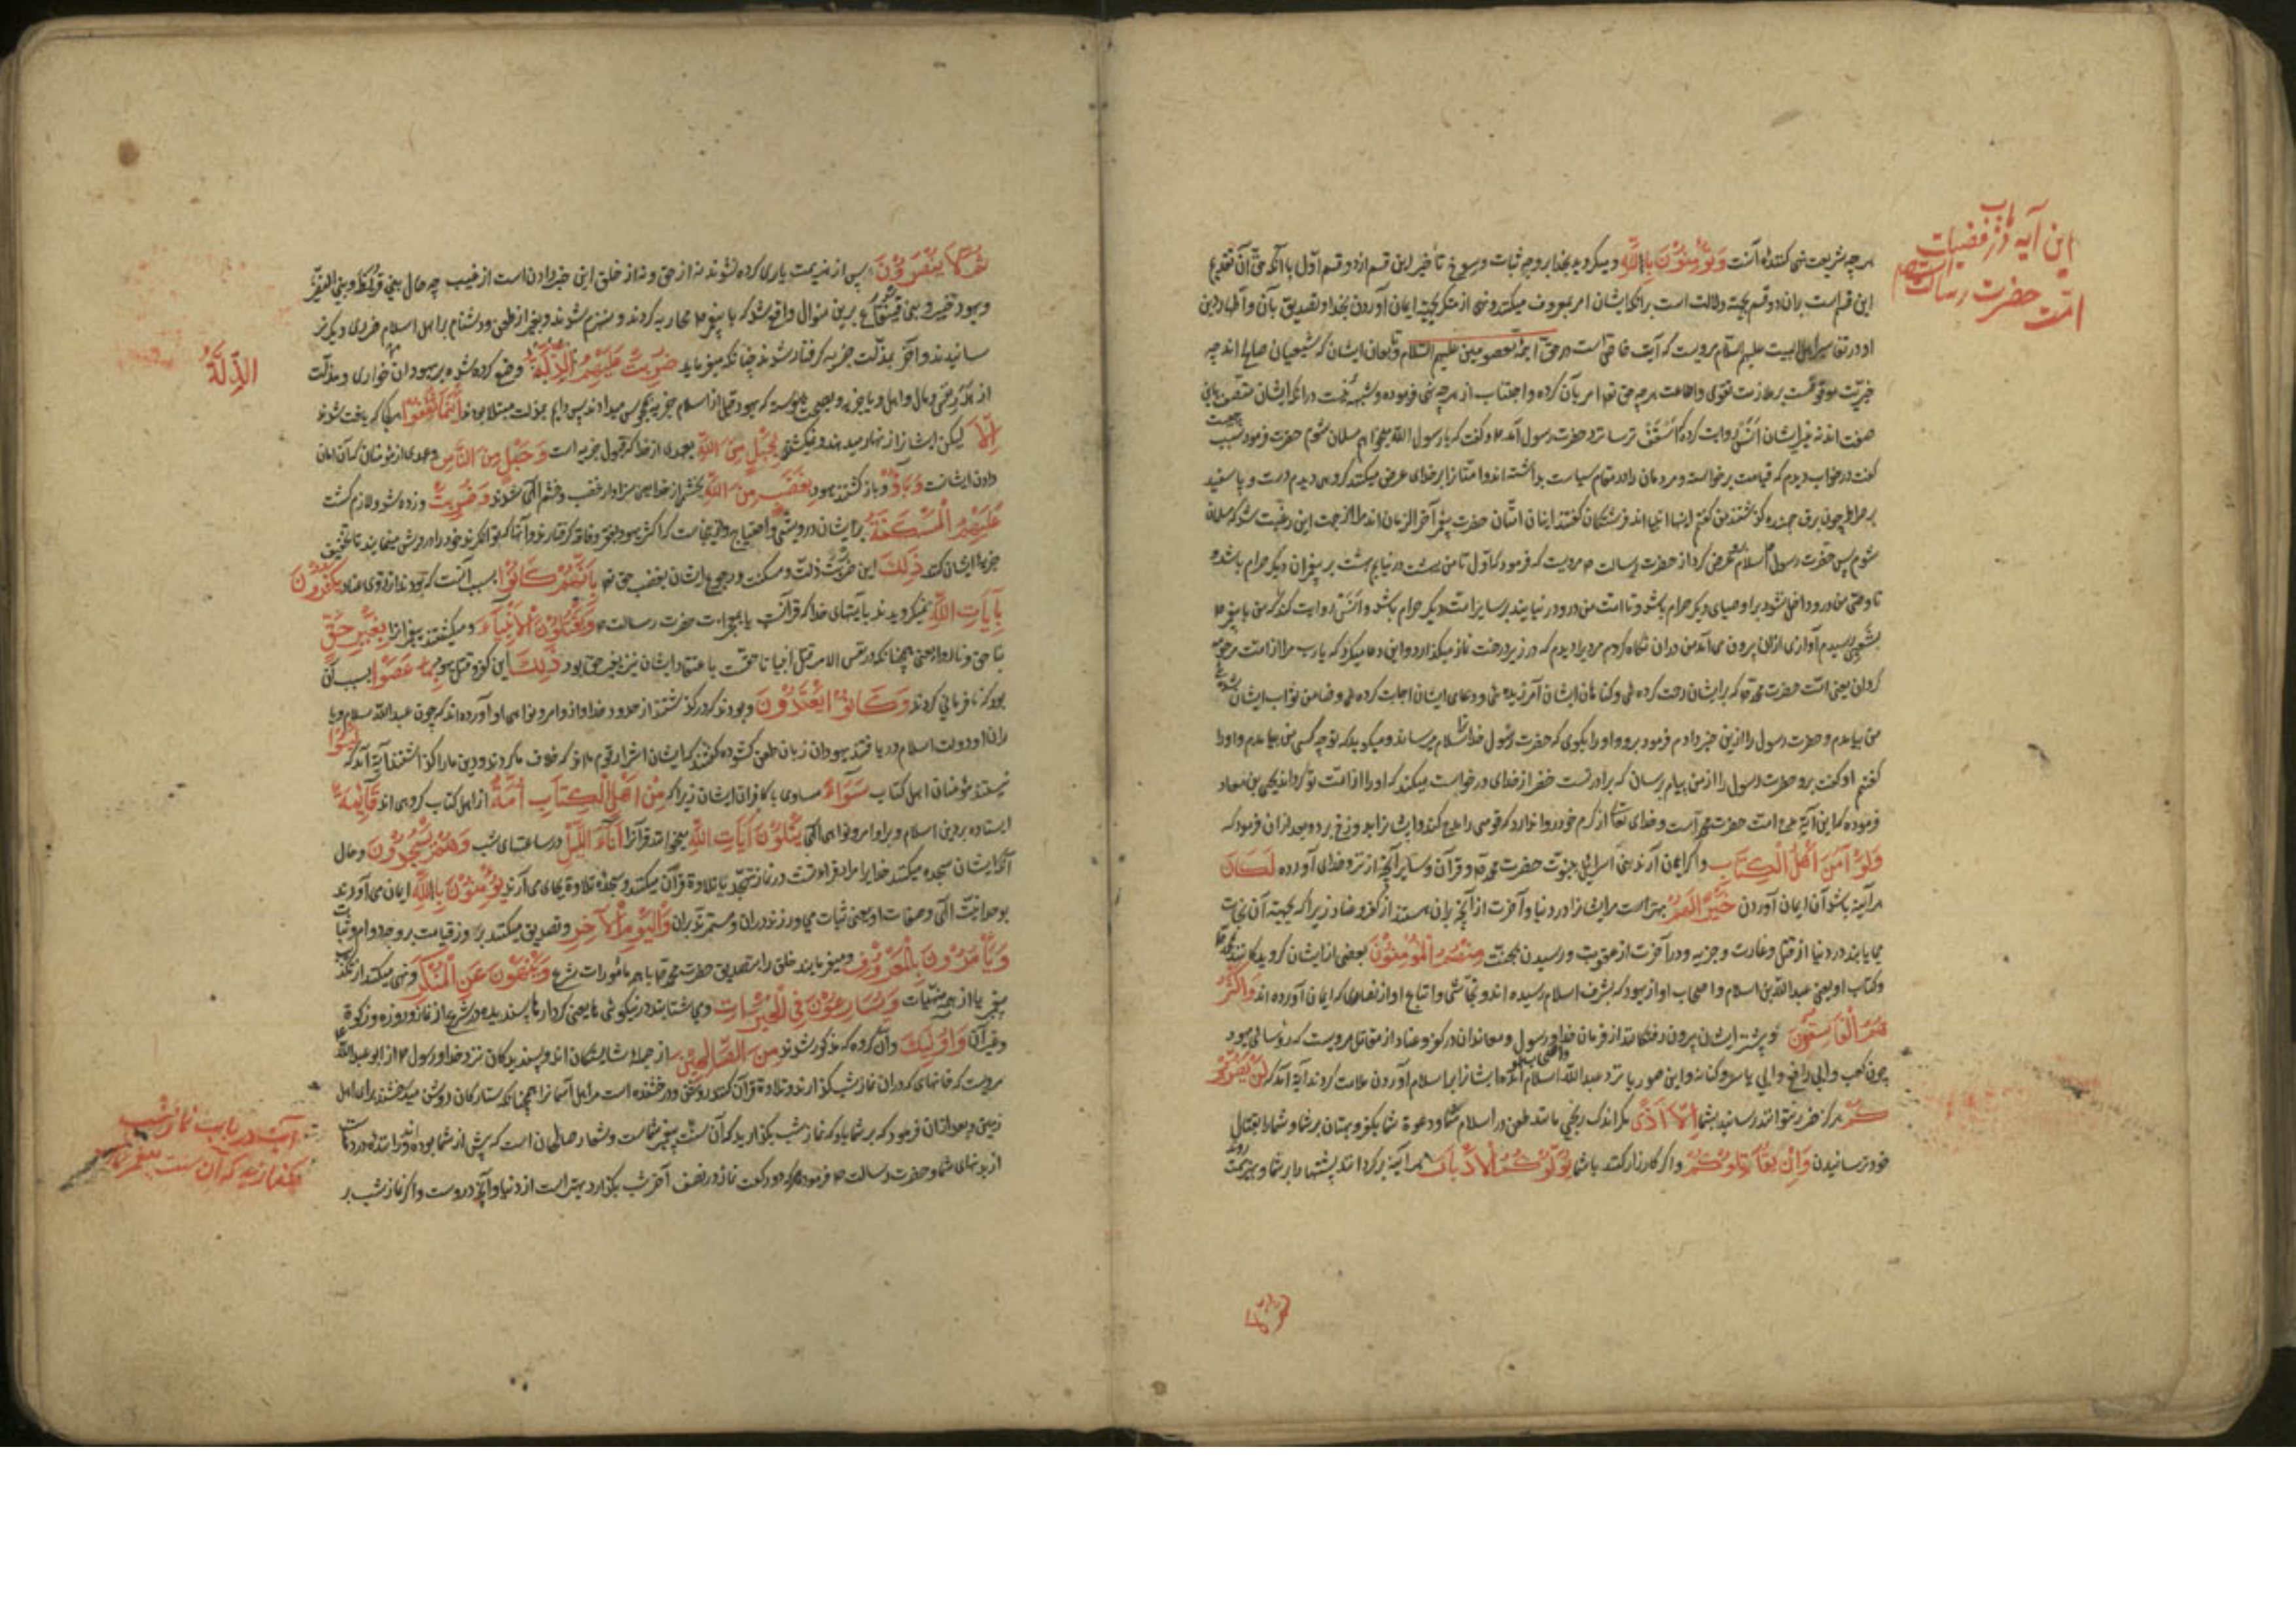 این آیه در باب فضیلت
امّت حضرت رسالت
هر چه شریعت نهی کند از آنست وَتُؤْمِنُوْنَ بِاللّٰهِ ومیگروید بخدا بر وجه ثبات و رسوخ تأخیر این قسم از دو قسم اوّل با آنکه حقّ آن تقدیم
این قسم است بران دو قسم بجهة دلالت است برانکه ایشان امر بمعروف میکنند و نهی از منکر بجهة ایمان آوردن بخدا و تصدیق بآن و اظهار دین
او در تفاسیر اهل البیت علیهم السلام مرویست که آیت خاصّ است در حقّ ایمّهٔ معصومین علیهم السّلام و تابعان ایشان که شیعیان صالح اند چه
خیریّت موقوفست بر ملازمت تقوی و اطاعت هر چه حق تعا امر بآن کرده و اجتناب از هر چه نهی فرموده و شبهه نیست درانکه ایشان متّصف باین
صفت اند نه غیر ایشان اَنَس روایت کرده که اُسْقُف ترسا نزد حضرت رسول آمد و گفت که یا رسول اللّه میخواهم مسلمان شوم حضرت فرمود بچه سبب
گفت در خواب دیدم که قیامت برخواسته و مردمان را در مقام سیاست بداشته اند و امّتانرا بر خدای عرض میکنند گروهی دیدم دست و پا سفید
بر صراط چون برق جهنده گذشتند من گفتم اینها انبیا اند فرشتگان گفتند اینان امّتان حضرت پیغمبر آخر الزمان اند مرا از جهت این رغبت شد که مسلمان
شوم پس حضرت رسول اسلام بر وی عرض کرد از حضرت رسالت مرویست که فرمود که اوّل تا من بهشت در نیایم بهشت بر پیغمبران دیگر حرام باشد و
تا وصیّ من در و داخل نشود بر اوصیای دیگر حرام باشد و تا امّت من درو در نیایند بر سایر امّت دیگر حرام باشد و اَنَسْ روایت کند که من با پیغمبر
بشعبی رسیدم آوازی ازان بیرون می آمد من دران نگاه کردم مردیرا دیدم که در زیر درخت نماز میگذارد و این دعا میکرد که یا رب مرا از امّت مرحومه
گردان یعنی امّت حضرت محمّد که بر ایشان رحمت کردهٔ و گناهان ایشان آمرزیدهٔ و دعای ایشان اجابت کردهٔ و ضامن ثواب ایشان شدهٔ
من بیامدم و حضرت رسول را ازین خبر دادم فرمود برو و او را بگوی که حضرت رسول خدا ترا سلام میرساند و میگوید که تو چه کسی من بیامدم و او را
گفتم او گفت برو حضرت رسول را از من پیام رسان که برادرت خضر از خدای درخواست میکند که او را از امّت تو گرداند یحیی بن معاد
فرموده که این آیهٔ مدح امّت حضرت محمّد است و خدای تعا از کرم خود روا ندارد که قومی را مدح کند و ایشانرا بدوزخ برد و بعد ازان فرمود که
وَلَوْ آمَنَ اَهْلُ الْكِتَابِ و اگر ایمان آرند بنی اسرائیل بنبوّت حضرت محمّد و قرآن و سایر آنچه از نزد خدای آورده لَكَانَ
هر آینه باشد آن ایمان آوردن خَيْرًا لَهُمْ بهتر است مر ایشانرا در دنیا و آخرت از آنچه بران هستند از کفر و عناد زیرا که بجهة آن نجات
می یابند در دنیا از قتل و غارت و جزیه و در آخرت از عقوبت و رسیدن بجنّت مِنْهُمُ الْمُؤْمِنُوْنَ بعضی از ایشان گرویدگانند
و کتاب او یعنی عبد اللّه بن اسلام و اصحاب او از یهود که بشرف اسلام رسیده اند و نجّاشی و اتباع او از نصاری که ایمان آورده اند وَاَكْثَرُ
هُمُ الْفَاسِقُوْنَ و بیشتر ایشان بیرون رفتگانند از فرمان خدا و رسول و معاندان در کفر و عناد از مقاتل مرویست که رؤسای یهود
چون کعب و ابی رافع و ابی یاسر و کنانه و ابن صوریا نزد عبد اللّه اسلام و اصحاب او آمدند و ایشانرا بر اسلام آوردن ملامت کردند آیة آمد که لَنْ يَضُرُّوْ
كُمْ هرگز ضرر نتوانند رسانید بشما اِلَّا اَذًى مگر اندک رنجی مانند طعن در اسلام شما و دعوة شما بکفر و بهتان بر شما و شما را بقتال
خود ترسانیدن وَاِنْ يُقَاتِلُوْكُمْ و اگر کارزار کنند با شما يُوَلُّوْكُمُ الْاَدْبَارَ هر آینه برگردانند پشتها را بر شما و بهزیمت روند
ثُمَّ لَا يُنْصَرُوْنَ پس از هزیمت یاری کرده نشوند نه از حق و نه از خلق این خبر دادن است از غیب چه حال بنی قریظه و بنی النضیر
و یهود خیبر و بنی قینقاع برین منوال واقع شد که با پیغمبر محاربه کردند و منهزم شوند و بغیر از طعن و دشنام بر اهل اسلام ضرری دیگر نر
سانیدند و آخر بمذلّت جزیه گرفتار شدند چنانکه میفرماید ضُرِبَتْ عَلَيْهِمُ الذِّلَّةُ وضع کرده شده بر یهودان خواری و مذلّت
الذِّلَّةُ
از هَدَرِ دم و مال و اهل و یا جزیه و بصحّت پیوسته که یهود قبل از اسلام جزیه بمجوس میدادند پس دایم بمذلّت مبتلا بودند اَيْنَمَا ثُقِفُوْا هر جا که یافته شوند
اِلَّا لیکن ایشانرا زنهار میدهند و نمیکشند بِحَبْلٍ مِنَ اللّٰهِ بعهدی از خدا که قبول جزیه است وَحَبْلٍ مِنَ النَّاسِ و عهدی از مؤمنان که آن امان
دادن ایشانست وَبَآؤُ و باز گشتند یهود بِغَضَبٍ مِنَ اللّٰهِ بخشم از خدا یعنی سزاوار غضب و خشم الهی شدند وَضُرِبَتْ و زده شد و لازم گشت
عَلَيْهِمُ الْمَسْكَنَةُ بر ایشان درویشی و احتیاج و ازینجاست که اکثر یهود بفقر و فاقه گرفتارند و آنها که توانگرند خود را درویش مینمایند تا تخفیف
جزیه ایشان کنند ذٰلِكَ این ضربت ذلّت و مسکنت و رجوع ایشان بغضب حق تعا بِاَنَّهُمْ كَانُوْا بسبب آنست که بودند از روی عناد يَكْفُرُوْنَ
بِآيَاتِ اللّٰهِ نمیگرویدند بآیتهای خدا که قرآنست یا بمعجزات حضرت رسالت وَيَقْتُلُوْنَ الْاَنْبِيَآءَ و میکشتند پیغمبرانرا بِغَيْرِ حَقٍّ
بنا حق و ناروا یعنی همچنانکه در نفس الامر قتل انبیا ناحقّست باعتقاد ایشان نیز بغیر حق بود ذٰلِكَ این کفر و قتل یهود بِمَا عَصَوْا بسبب آن
بود که نافرمانی کردند وَكَانُوْا يَعْتَدُوْنَ و بودند که در گذشتند از حدود خدا و از اوامر و نواهی او آورده اند که چون عبد اللّه سلام و یا
ران او دولت اسلام دریافتند یهودان زبان طعن گشوده گفتند که ایشان اشرار قوم ما اند که خلاف ما کردند و دین ما را گذاشتند آیة آمد که لَيْسُوْا
نیستند مؤمنان اهل کتاب سَوَآءً مساوی با کافران ایشان زیرا که مِنْ اَهْلِ الْكِتَابِ اُمَّةٌ از اهل کتاب گروهی اند قَآئِمَةٌ
ایستاده بر دین اسلام و بر اوامر و نواهی الهی يَتْلُوْنَ آيَاتِ اللّٰهِ میخوانند قرآنرا آنَآءَ اللَّيْلِ در ساعتهای شب وَهُمْ يَسْجُدُوْنَ و حال
آنکه ایشان سجده میکنند خدایرا مراد قراءت در نماز تهجّد یا تلاوة قرآن میکنند و سجدهٔ تلاوة بجای می آرند يُؤْمِنُوْنَ بِاللّٰهِ ایمان می آورند
بوحدانیّت الهی و صفات او یعنی ثبات می ورزند دران و مستمرند بران وَالْيَوْمِ الْآخِرِ و تصدیق میکنند بروز قیامت بر وجه دوام و ثبات
وَيَأْمُرُوْنَ بِالْمَعْرُوْفِ و میفرمایند خلق را بتصدیق حضرت محمّد یا بهر مأمورات شرع وَيَنْهَوْنَ عَنِ الْمُنْكَرِ و نهی میکنند از تکذیب
پیغمبر یا از همه منهیّات وَيُسَارِعُوْنَ فِى الْخَيْرَاتِ و می شتابند در نیکوئی ها یعنی کردارها پسندیده در شرع از نماز و روزه و زکوة
و غیر آن وَاُولٰٓئِكَ و آن گروه که مذکور شدند مِنَ الصَّالِحِيْنَ از جملهٔ شایستگان اند و پسندیدگان نزد خدا و رسول از ابو عبد اللّه
مرویست که خانهای که دران نماز شب گذارند و تلاوة قرآن کنند روشنی و درخشنده است مر اهل آسمانرا همچنانکه ستارگان روشن میدرخشند برای اهل
زمین و بعد ازان فرمود که بر شما باد که نماز شب بگذارید که آن سنّت پیغمبر شماست و شعار صالحان است که پیش از شما بوده اند و دوا کننده دردهاست
از بدنهای شما و حضرت رسالت فرموده که دو رکعت نماز در نصف آخر شب بگذارد بهتر است از دنیا و آنچه دروست و اگر نماز شب بر
آیت در باب نماز شب